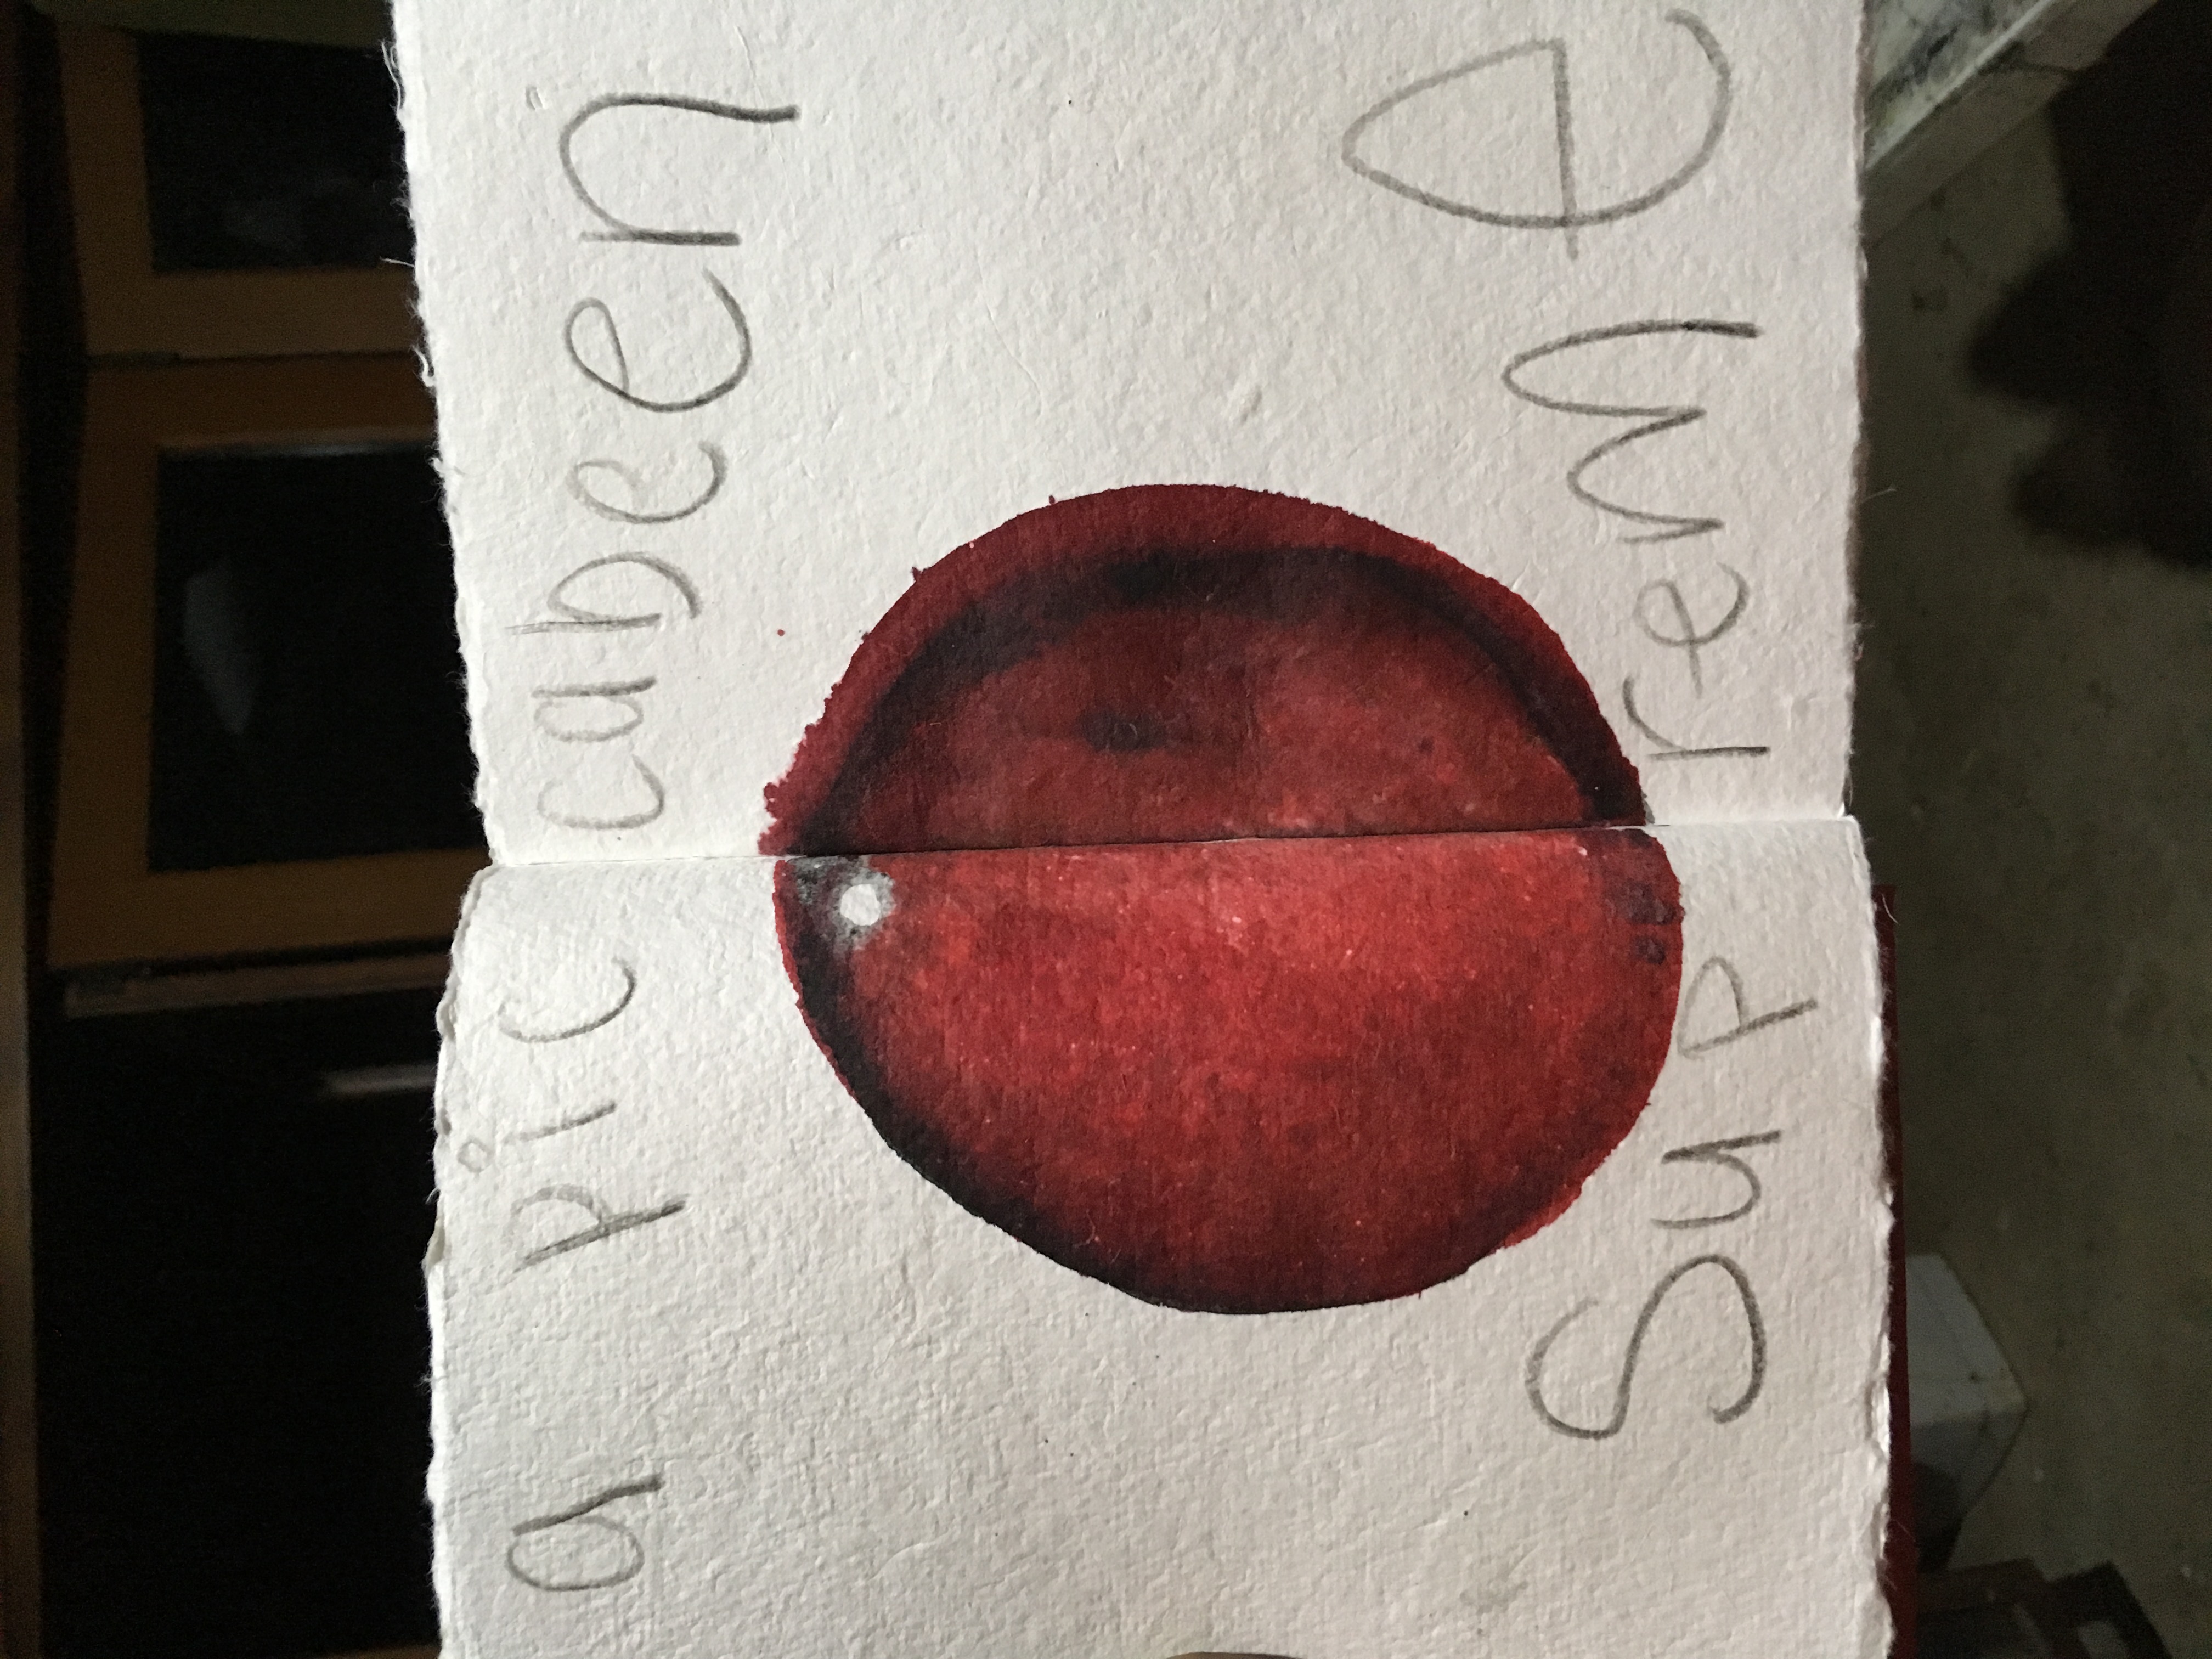 a piccabeen
Supreme